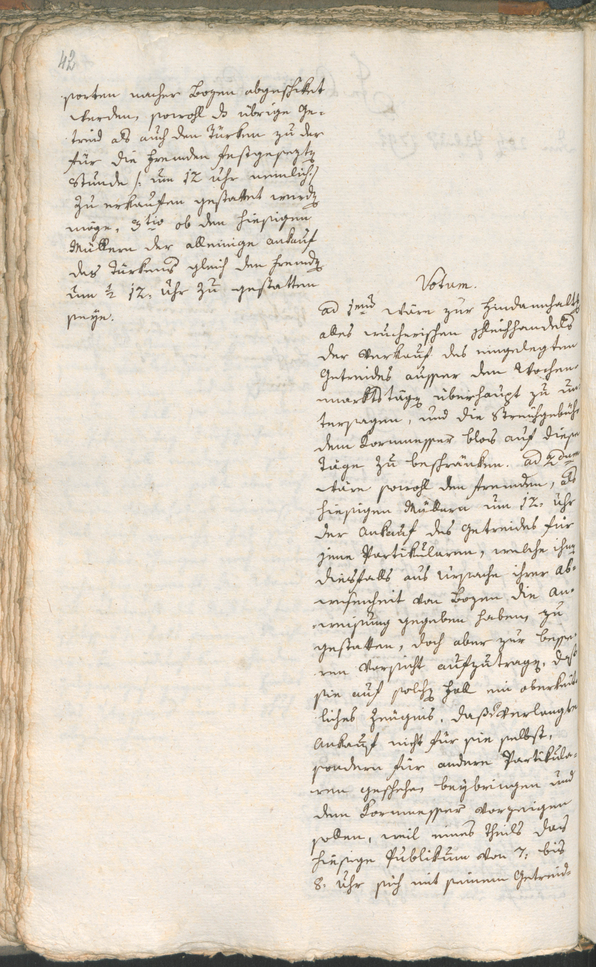 42
sorten nacher Bozen abgeschiket
werden, sowohl ds übrige Ge-
treid als auch den Türken zu der
für die Fremden festgesezte
Stunde /: um 12 uhr nemlich :/
zu erkaufen gestattet werde
möge. 3tio ob den hiesigen
Müllern der alleinige ankauf
des Türkens gleich den Fremde
um ½ 12. Uhr zu gestatten
seye.
Votum.
ad 1mum wäre zur Hindannhaltg
alles wucherischen Schleichhandels
der Verkauf des eingelegten
Getreides ausser den Wochen-
marktstäge überhaupt zu un-
tersagen, und die Streichgebühr
dem Kornmesser blos auf diese
Täge zu beschränken. ad 2dum
wäre sowohl den fremden, als
hiesigen Müllern um 12. Uhr
der Ankauf des Getreides für
jene Partikularen, welche ihn
diesfalls aus Ursache ihrer Ab-
wesenheit von Bozen die An-
weisung gegeben haben, zu
gestatten, doch aber zur besse-
ren Vorsicht aufzutrage, daß
sie auf solche Fall ein oberkeit-
liches Zeugnis, daß verlangte
Ankauf nicht für sie selbst,
sondern für andere Partikula-
ren geschehe, beybringen und
dem Kornmesser vorzeigen
sollen, weil eines Theils das
hiesige Publikum von 7. bis
8. Uhr sich mit seinem Getreid-